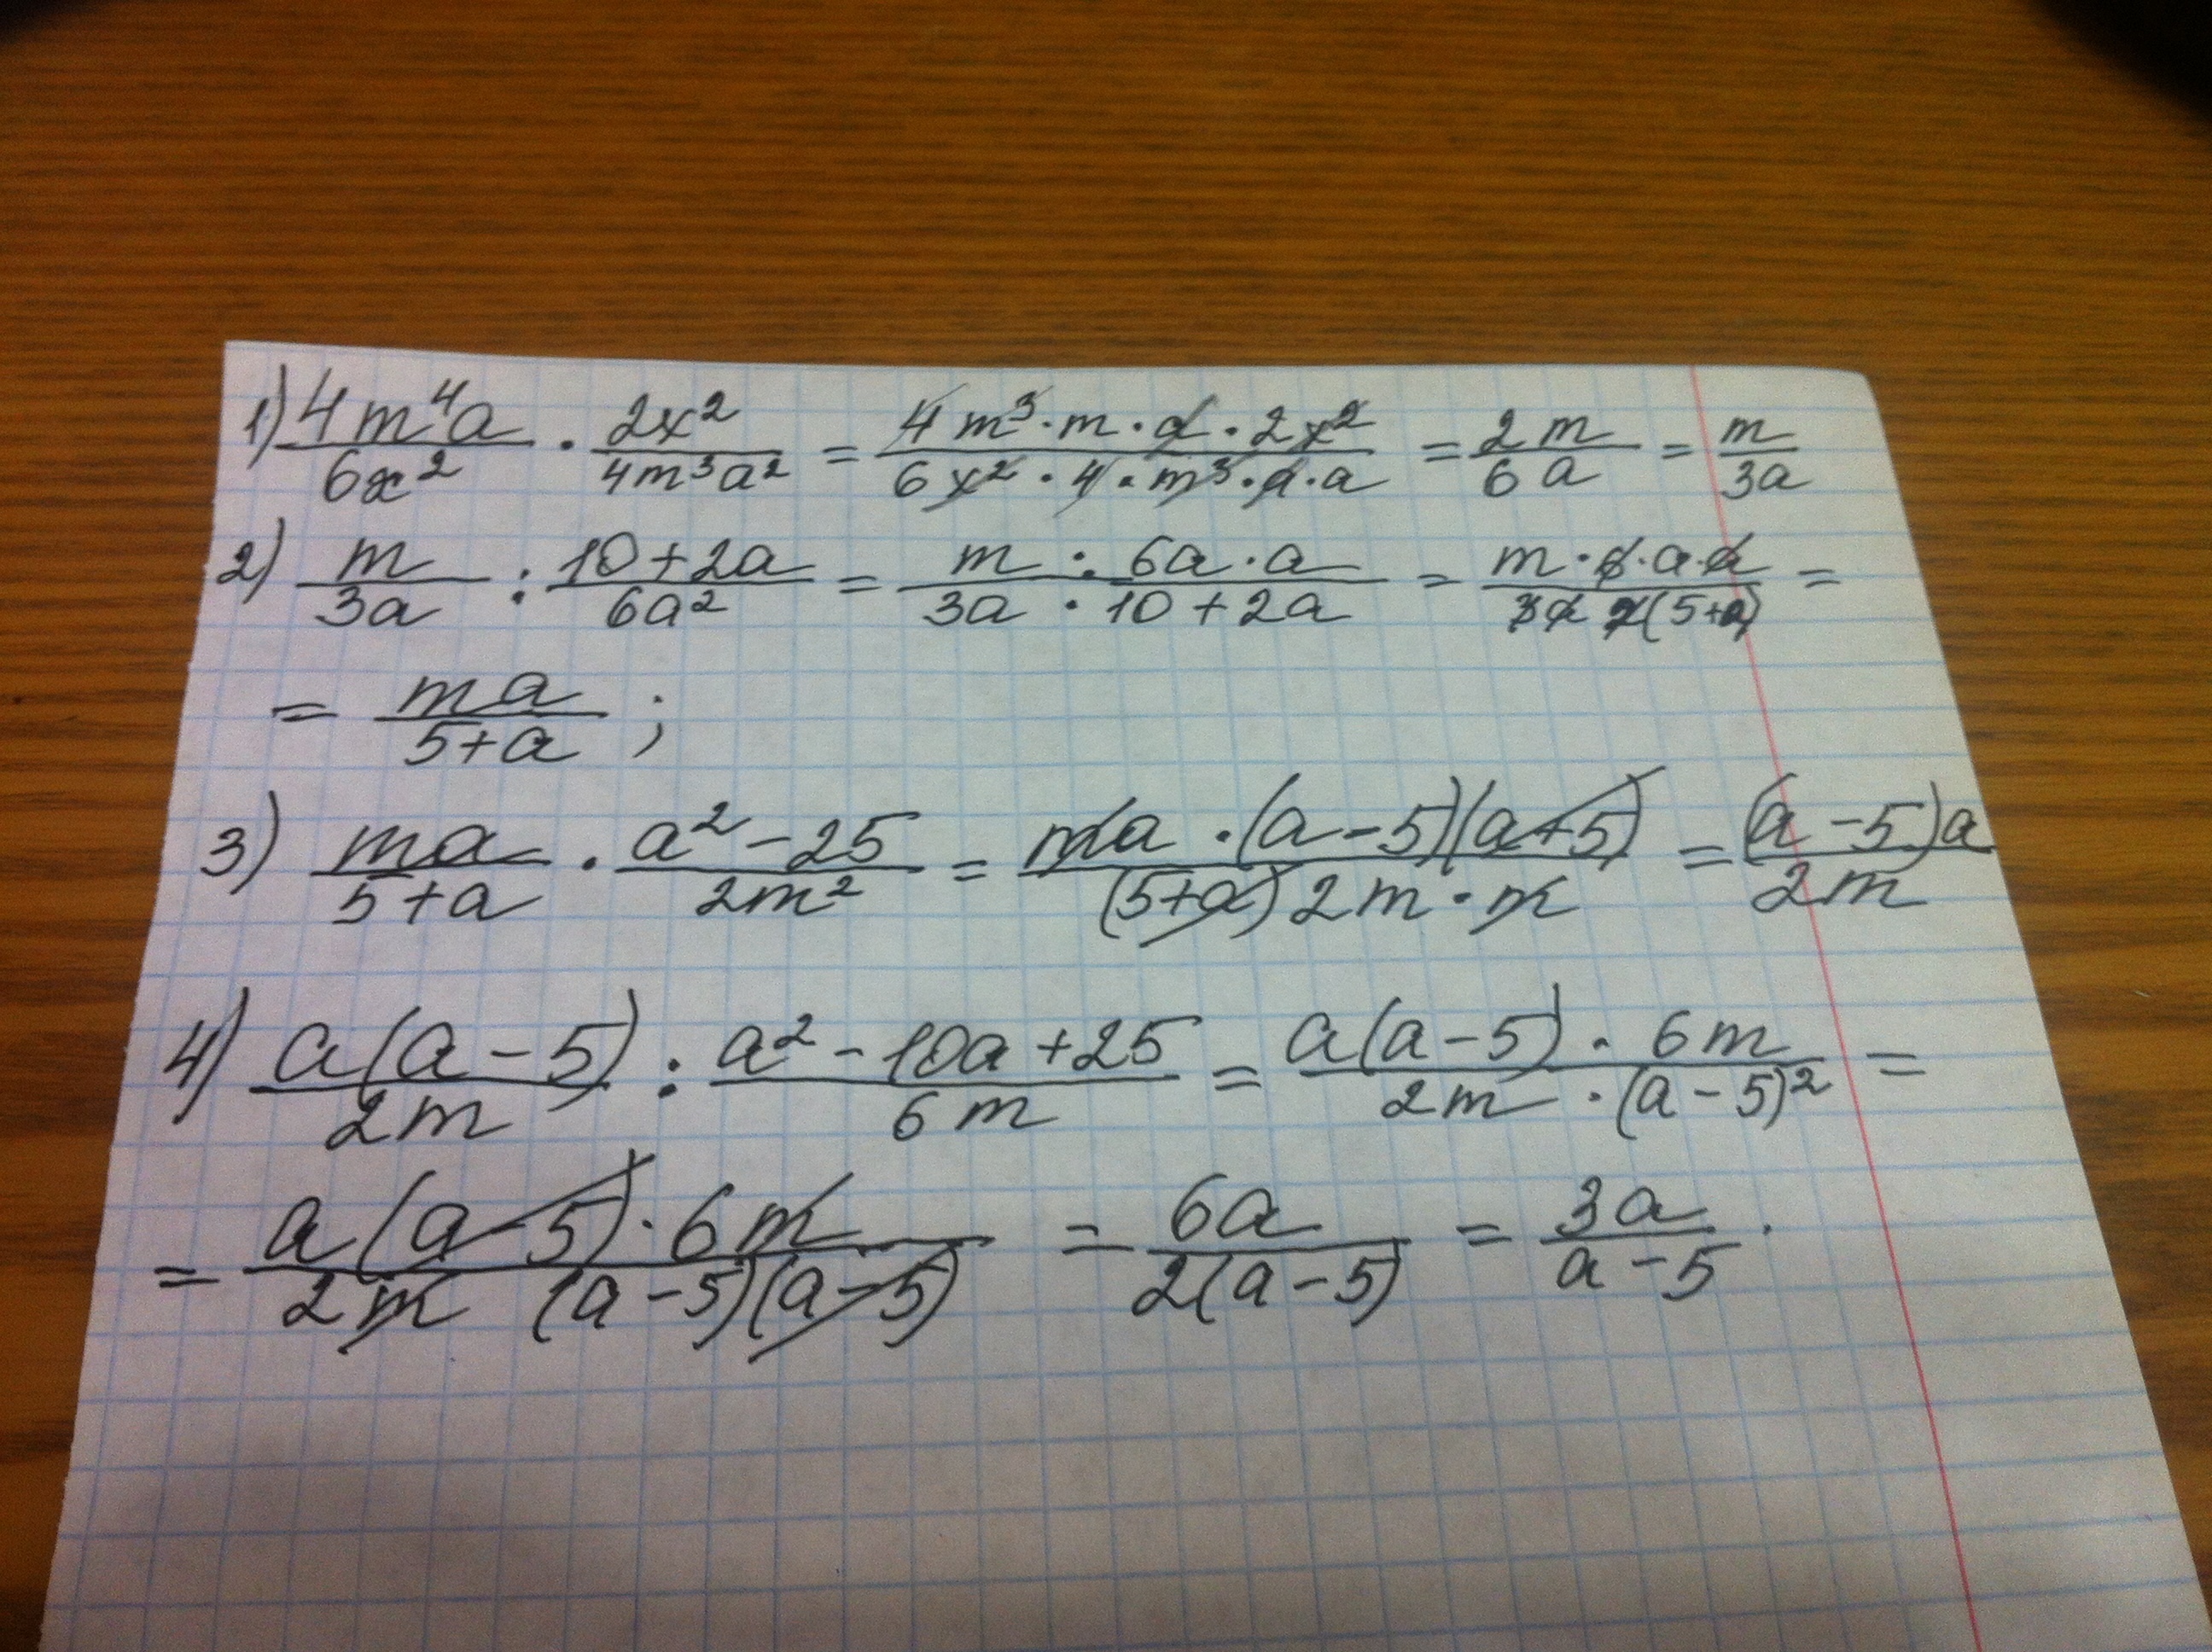 1) 4m⁴a/6x² · 2x²/4m³a² = 4m³·m·a·2x²/6x²·4·m³·a·a = 2m/6a = m/3a
2) m/3a : 10+2a/6a² = m · 6a·a/3a · 10+2a = m·6·a·a/3a 2(5+a) =
= ma/5+a ;
3) ma/5+a · a²-25/2m² = ma·(a-5)(a+5)/(5+a)2m·m = (a-5)a/2m
4) a(a-5)/2m : a²-10a+25/6m = a(a-5)·6m/2m·(a-5)² =
= a(a-5)·6m/2m (a-5)(a-5) = 6a/2(a-5) = 3a/a-5 .